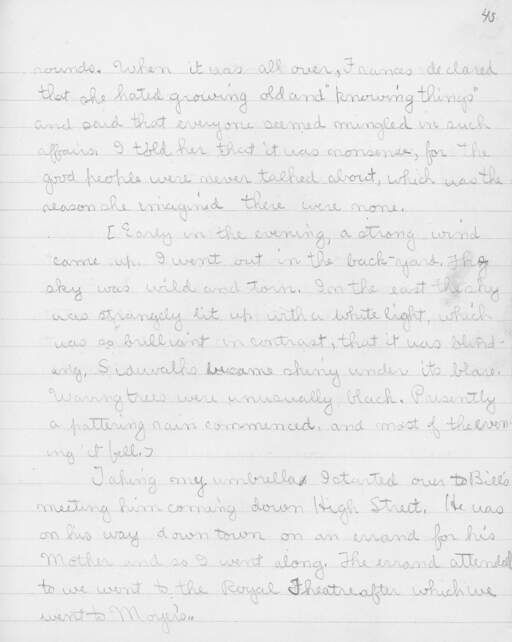 45
rounds. When it was all over, Frances declared
that she hated growing old and "knowing things"
and said that everyone seemed mingled in such
affairs. I told her that it was nonsense, for the
good people were never talked about, which was the
reason she imagin'd there were none.
[Early in the evening, a strong wind
came up. I went out in the back-yard. The
sky was wild and torn. In the east the sky
was strangely lit up with a white light, which
was so brilliant in contrast, that it was blind-
ing. Sidewalks became shiny under its blare.
Waving trees were unusually black. Presently
a pattering rain commenced, and most of the even-
ing it fell.]
Taking my umbrella I started over to Bill's
meeting him coming down High Street. He was
on his way down town on an errand for his
Mother and so I went along. The errand attended
to we went to the Royal Theatre after which we
went to Moyer's.